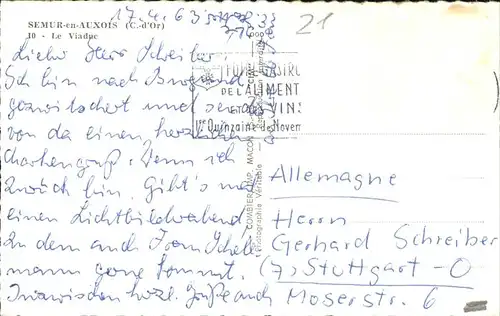 SEMUR-en-AUXOIS (C.-d'Or)
10 - Le Viaduc
17.4.63
21
Lieber Herr Schreiber,
Ich bin nach Burgund
gezwitschert und sende
von da einen herzlichen
Wenn ich
zurück bin, gibt's mal
einen Lichtbildabend
Zu dem auch
mann gerne kommt.
Inzwischen herzl. Grüße auch
GASTRO
DE L'ALIMENT
ET DES VINS
1re Quinzaine de Novem
COMBIER IMP. MACON
Photographie Véritable
Allemagne
Herrn
Gerhard Schreiber
(7) Stuttgart-O
Moserstr. 6